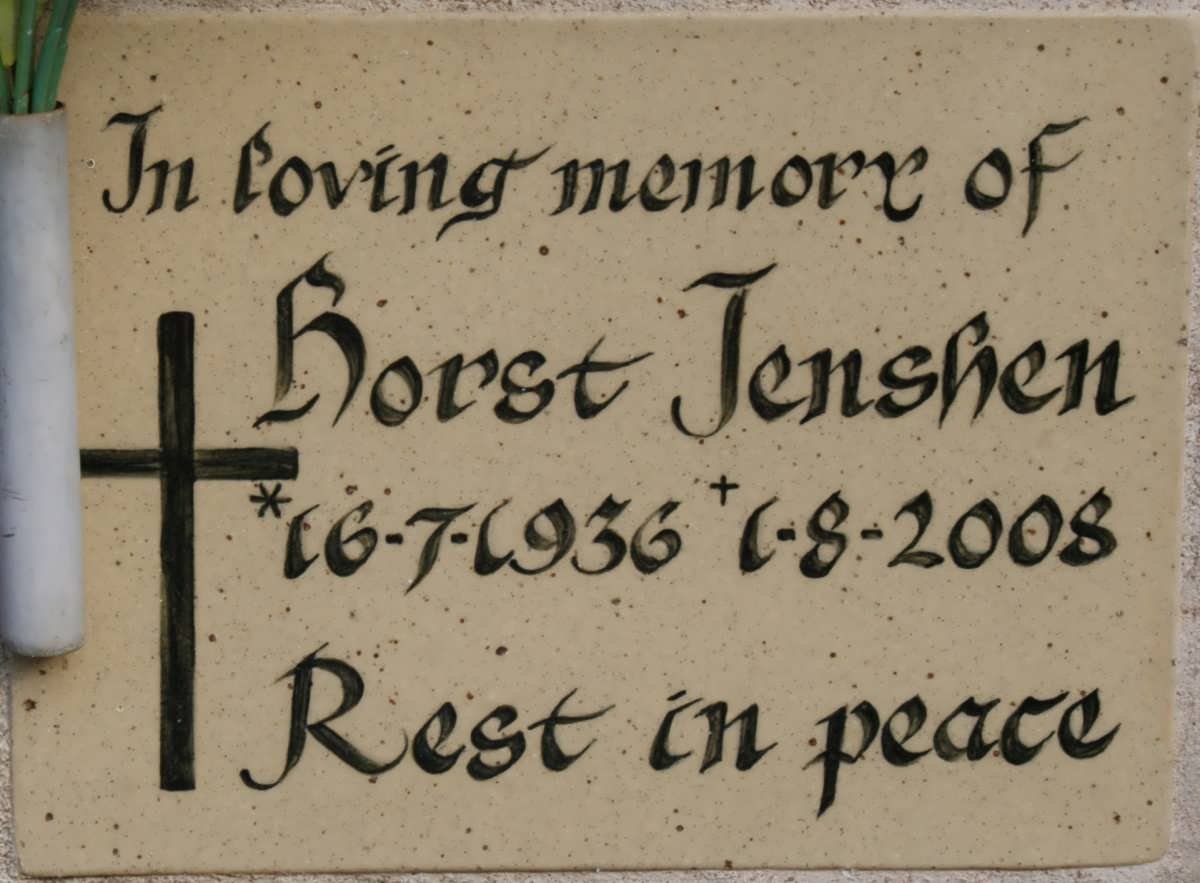 In loving memory of
Horst Jenshen
*16-7-1936 +1-8-2008
Rest in peace